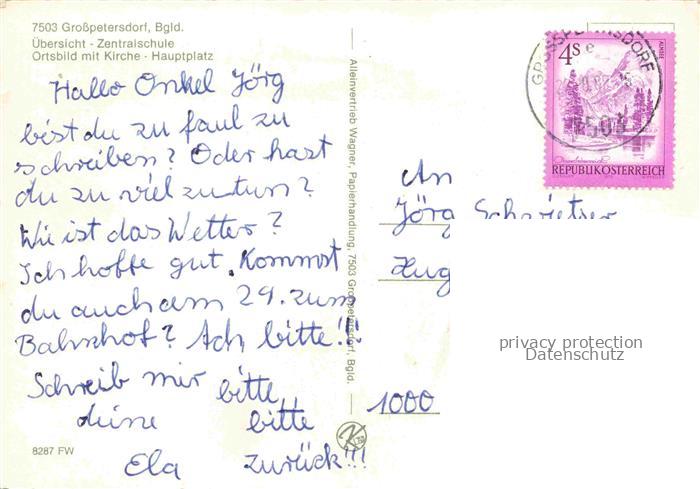 7503 Großpetersdorf, Bgld.
Übersicht - Zentralschule
Ortsbild mit Kirche - Hauptplatz
Hallo Onkel Jörg
bist du zu faul zu
schreiben? Oder hast
du zu viel zu tun?
Wie ist das Wetter?
Ich hoffe gut. Kommst
du auch am 29. zum
Bahnhof? Ach bitte!!!
Schreib mir bitte
deine bitte
Ela zurück!!!
8287 FW
Alleinvertrieb Wagner, Papierhandlung, 7503 Großpetersdorf, Bgld.
GROSSPETERSDORF
7503
4S
ALMSEE
REPUBLIK ÖSTERREICH
An
Jörg
1000
privacy protection
Datenschutz